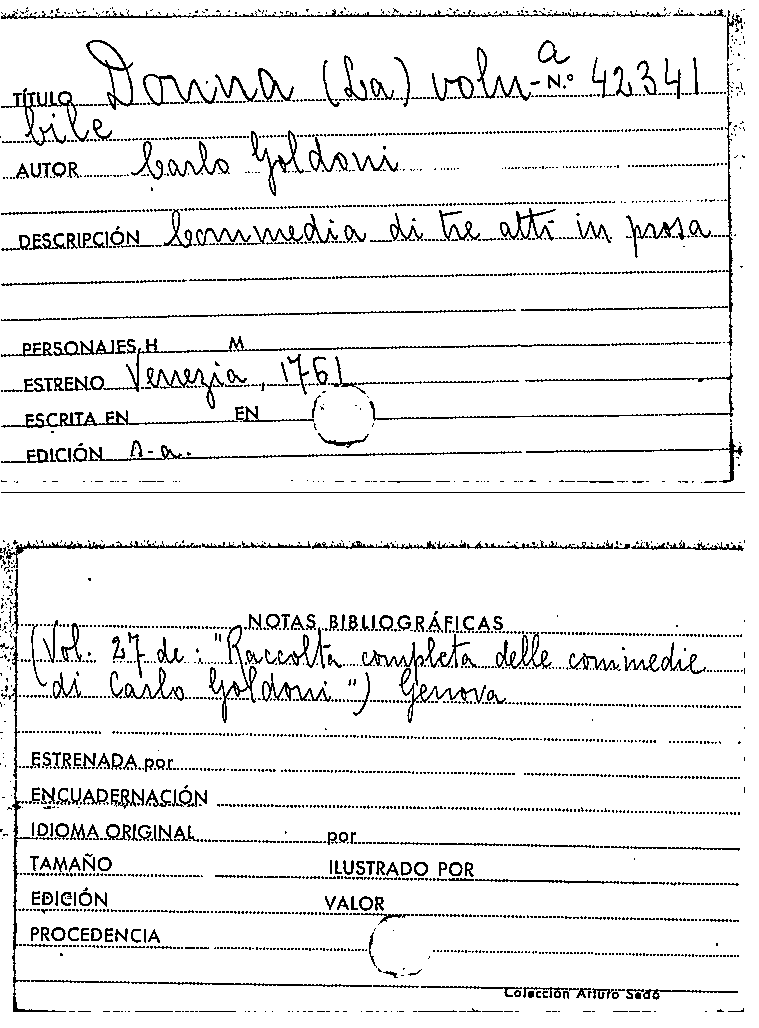 a
TÍTULO Donna (La) volu- N.º 42341
bile
AUTOR Carlo Goldoni
DESCRIPCIÓN Commedia di tre atti in prosa
PERSONAJES, H M
ESTRENO Venezia, 1761
ESCRITA EN EN
EDICIÓN s-a.
NOTAS BIBLIOGRÁFICAS
(Vol. 27 de: "Raccolta completa delle commedie
di Carlo Goldoni") Genova
ESTRENADA por
ENCUADERNACIÓN
IDIOMA ORIGINAL por
TAMAÑO ILUSTRADO POR
EDICIÓN VALOR
PROCEDENCIA
Colección Arturo Sedó